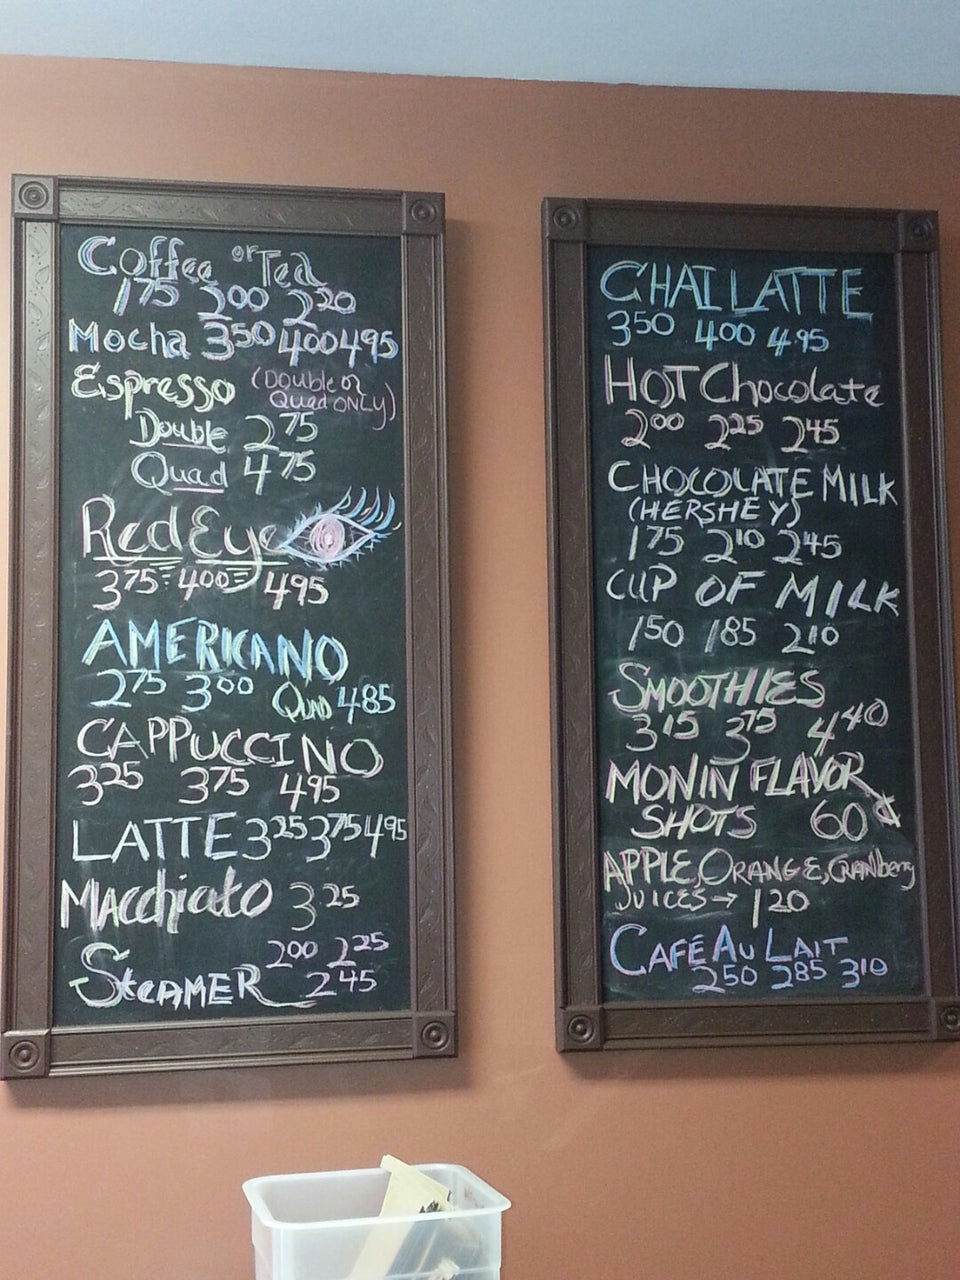 Coffee or Tea
175 200 220
Mocha 350 400 495
Espresso (Double or
Quad ONLY)
Double 275
Quad 475
Red Eye
375 400 495
AMERICANO
275 300 Quad 485
CAPPUCCINO
325 375 495
LATTE 325 375 495
Macchiato 325
200 225
STEAMER 245
CHAI LATTE
350 400 495
HOT Chocolate
200 225 245
CHOCOLATE MILK
(HERSHEY)
175 210 245
CUP OF MILK
150 185 210
SMOOTHIES
315 375 440
MONIN FLAVOR
SHOTS 60¢
APPLE, ORANGE, CRANberry
JUICES → 120
CAFÉ AU LAIT
250 285 310